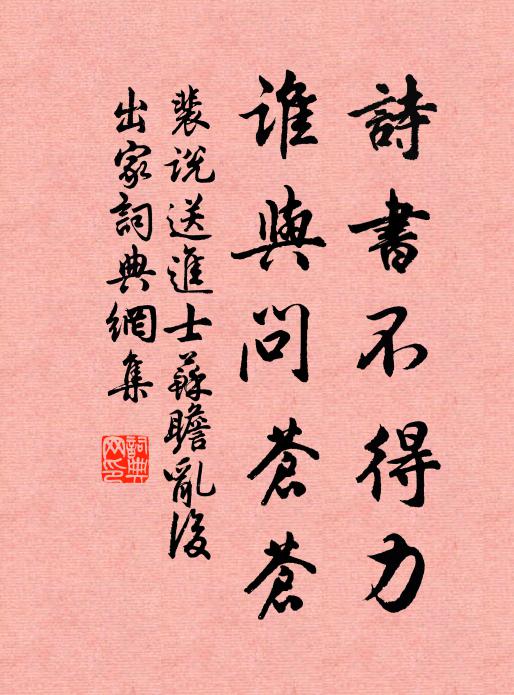 詩書不得力
誰與問蒼蒼
裴説送進士蘇瞻亂後
出家詞典網集
詞典
网印